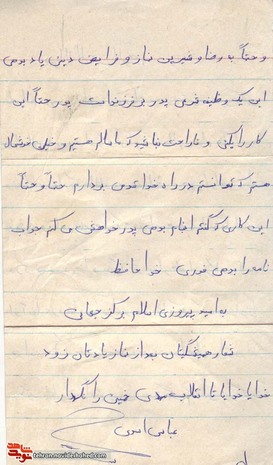 و حتماً به رضا و شیرین نماز و فرایض دینی یاد بدهی
این یک وظیفه شرعی پدر بر فرزند است پدر حتماً این
کار را بکنی و ناراحت نباشید که ما سالم هستیم و خیلی خوشحال
هستم که توانستم در راه خدا قدمی بردارم حتماً و حتماً
این کاری که گفتم انجام بدهی پدر خواهش می کنم جواب
نامه را بدهی فوری خداحافظ
به امید پیروزی اسلام بر کفر جهان
شعار همیشگیتان بعد از نماز یادتان نرود
خدایا خدایا تا انقلاب مهدی خمینی را نگهدار
عباس
tehran.navideshahed.com
نوید شاهد